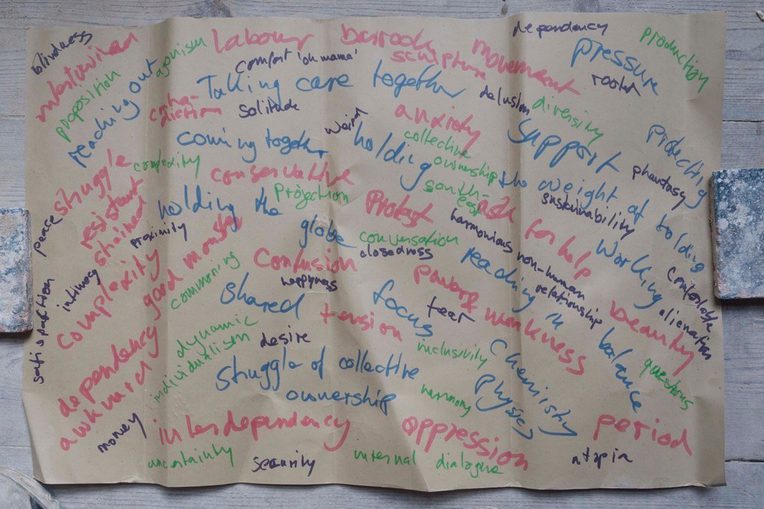 blindness
intertwined
proposition
agonism
reaching out
labour
comfort 'oh mama'
barock
sculpture
movement
dependency
pressure
production
Taking care together
contra-
diction
solitude
delusion
diversity
anxiety
coming together
weird
holding
collective
ownership
support
protecting
the weight of holding
phantasy
struggle
complexity
conservative
projection
south-
east
sustainability
resistant
stained
proximity
holding the
globe
Protest
harmonious
ask for help
peace
intimacy
complexity
good monster
confusion
conversation
closedness
non-human
relationship
working
comfortable
alienation
commoning
happyness
reaching in
shared
tension
focus
fear
weakness
beauty
satisfaction
dynamic
individualism
desire
inclusivity
chemistry
physics
balance
questions
dependency
awkward
struggle of collective
ownership
harmony
money
interdependency
oppression
period
uncertainty
security
internal dialogue
utopia